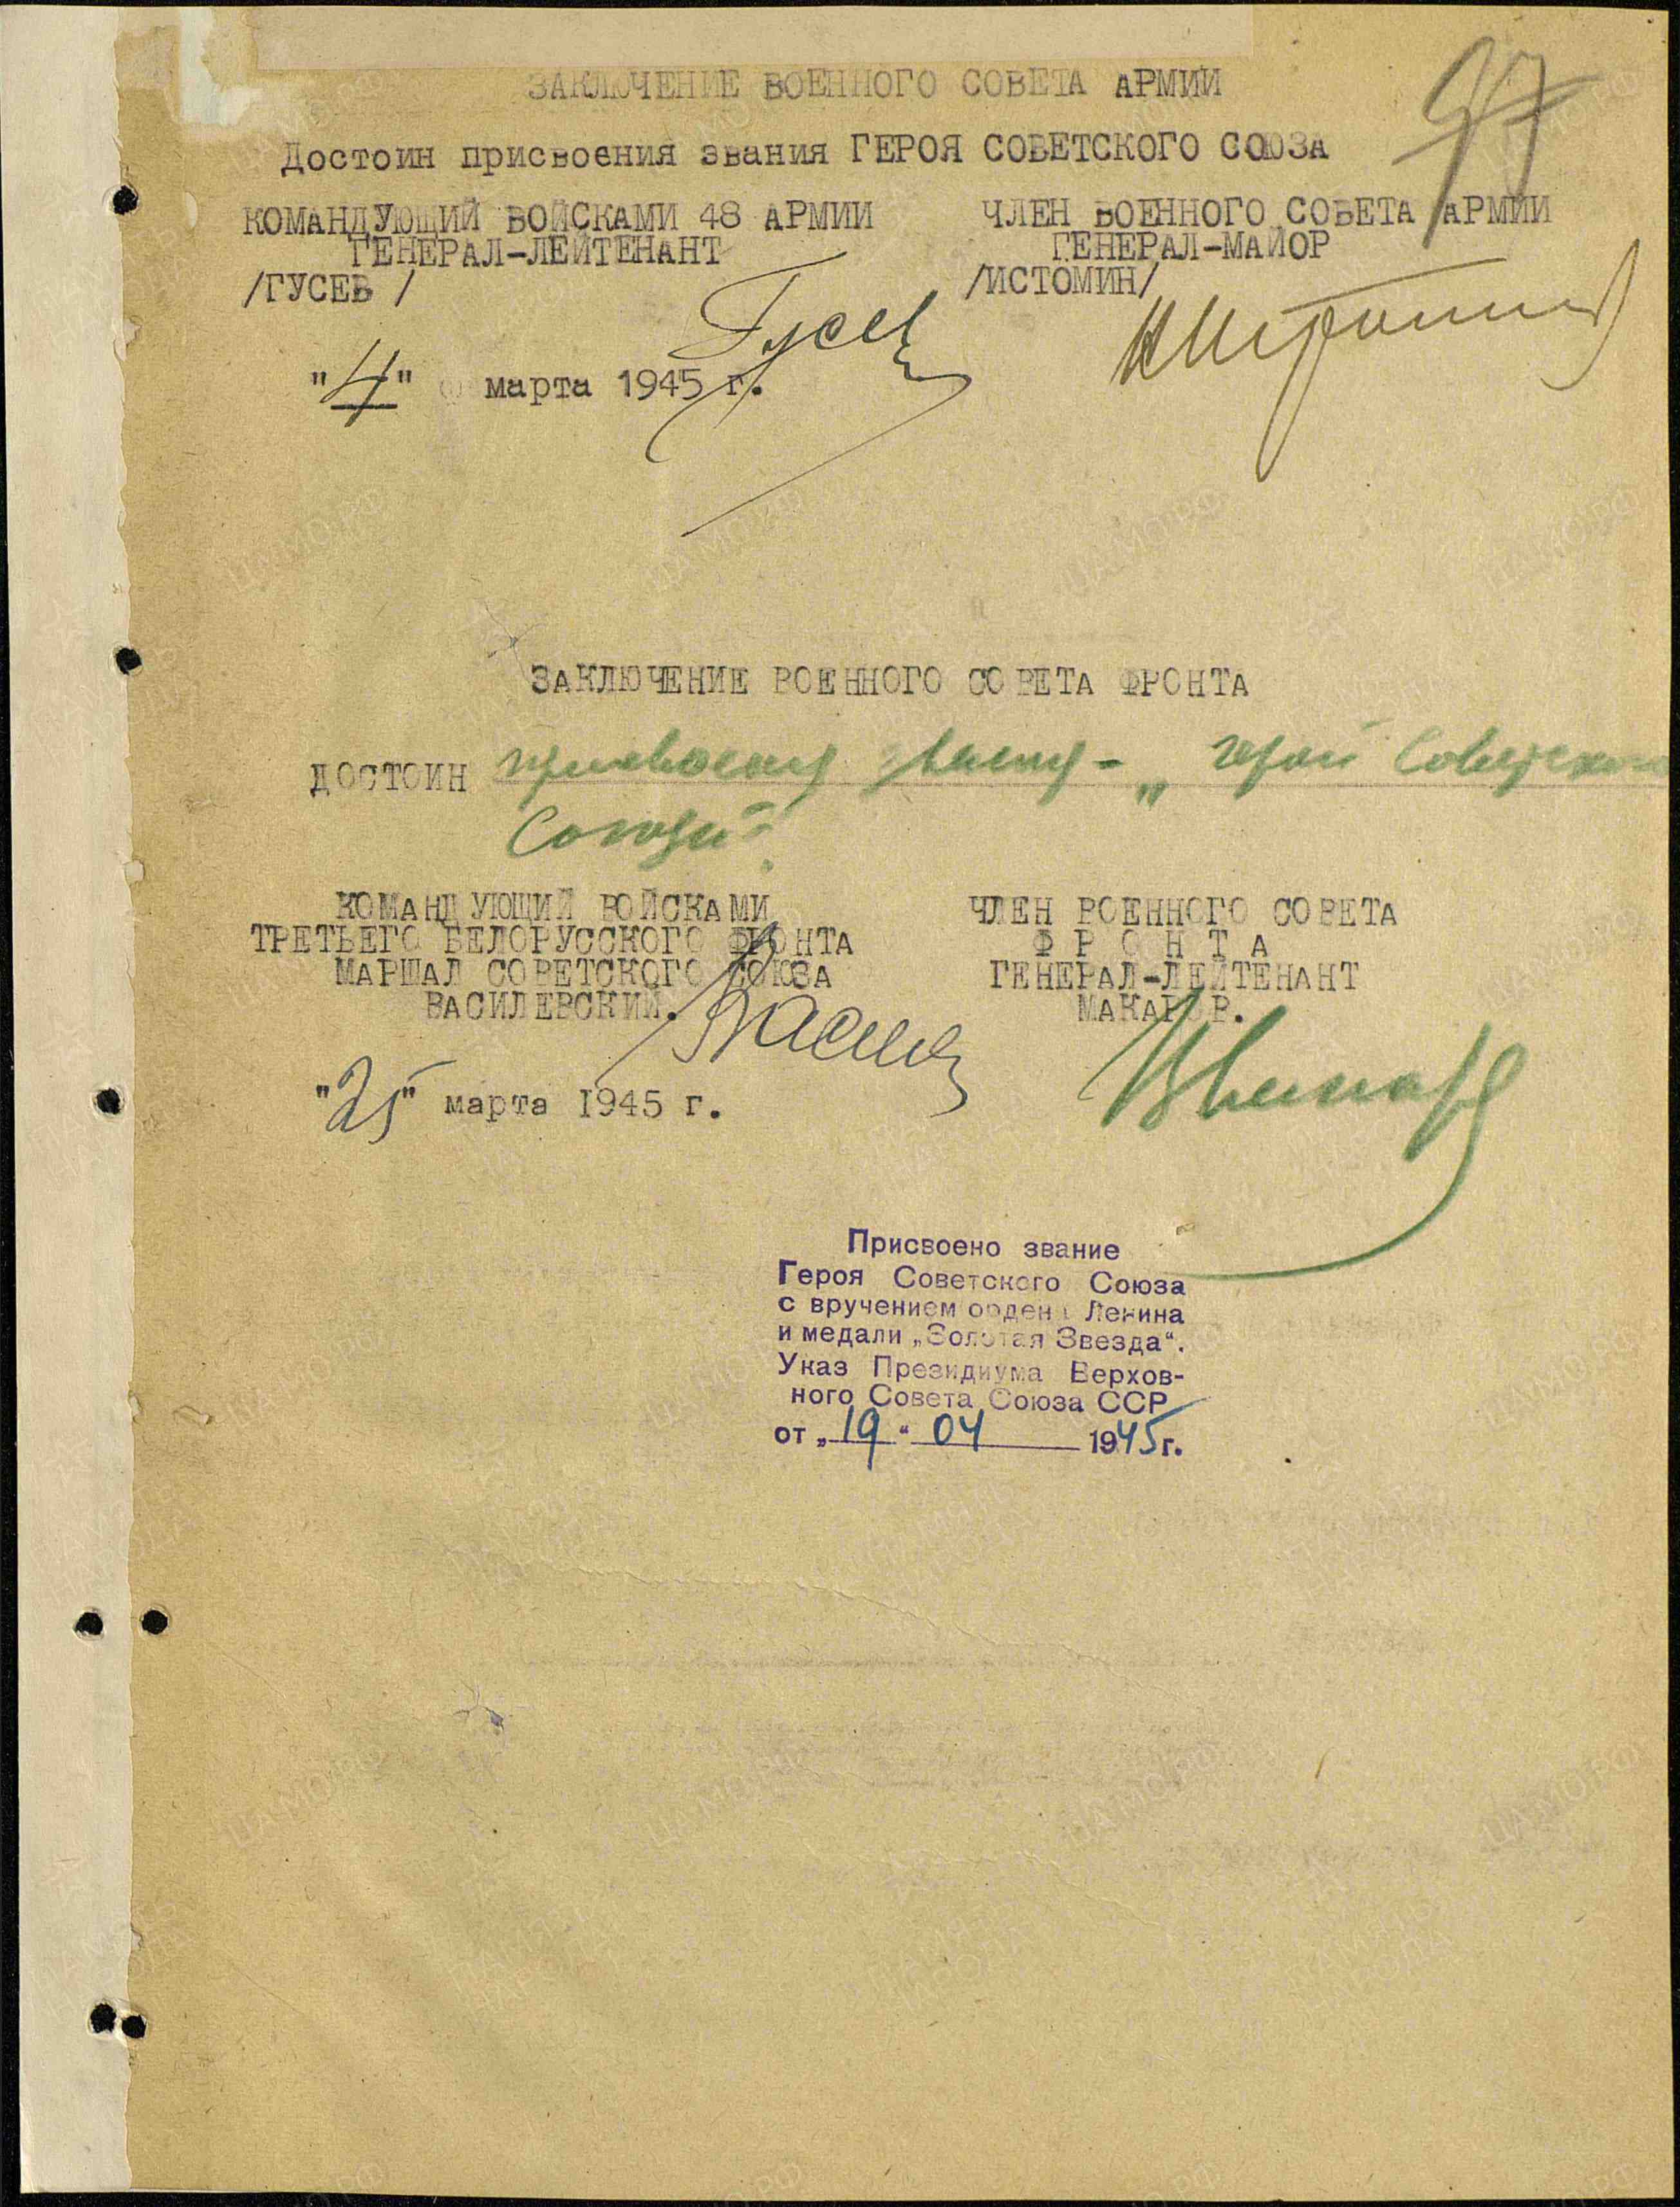 97
ЗАКЛЮЧЕНИЕ ВОЕННОГО СОВЕТА АРМИИ
Достоин присвоения звания ГЕРОЯ СОВЕТСКОГО СОЮЗА
КОМАНДУЮЩИЙ ВОЙСКАМИ 48 АРМИИ
ГЕНЕРАЛ-ЛЕЙТЕНАНТ
/ГУСЕВ /
Гусев
ЧЛЕН ВОЕННОГО СОВЕТА АРМИИ
ГЕНЕРАЛ-МАЙОР
/ИСТОМИН/
"4" марта 1945 г.
ЗАКЛЮЧЕНИЕ ВОЕННОГО СОВЕТА ФРОНТА
ДОСТОИН „ герой Советского
Союза“.
КОМАНДУЮЩИЙ ВОЙСКАМИ
ТРЕТЬЕГО БЕЛОРУССКОГО ФРОНТА
МАРШАЛ СОВЕТСКОГО СОЮЗА
ВАСИЛЕВСКИЙ.
ЧЛЕН ВОЕННОГО СОВЕТА
ФРОНТА
ГЕНЕРАЛ-ЛЕЙТЕНАНТ
МАКАРОВ.
"25" марта 1945 г.
Присвоено звание
Героя Советского Союза
с вручением ордена Ленина
и медали „Золотая Звезда“.
Указ Президиума Верхов-
ного Совета Союза ССР
от „19“ 04 1945г.
ЦАМО.РФ
ПАМЯТЬ НАРОДА